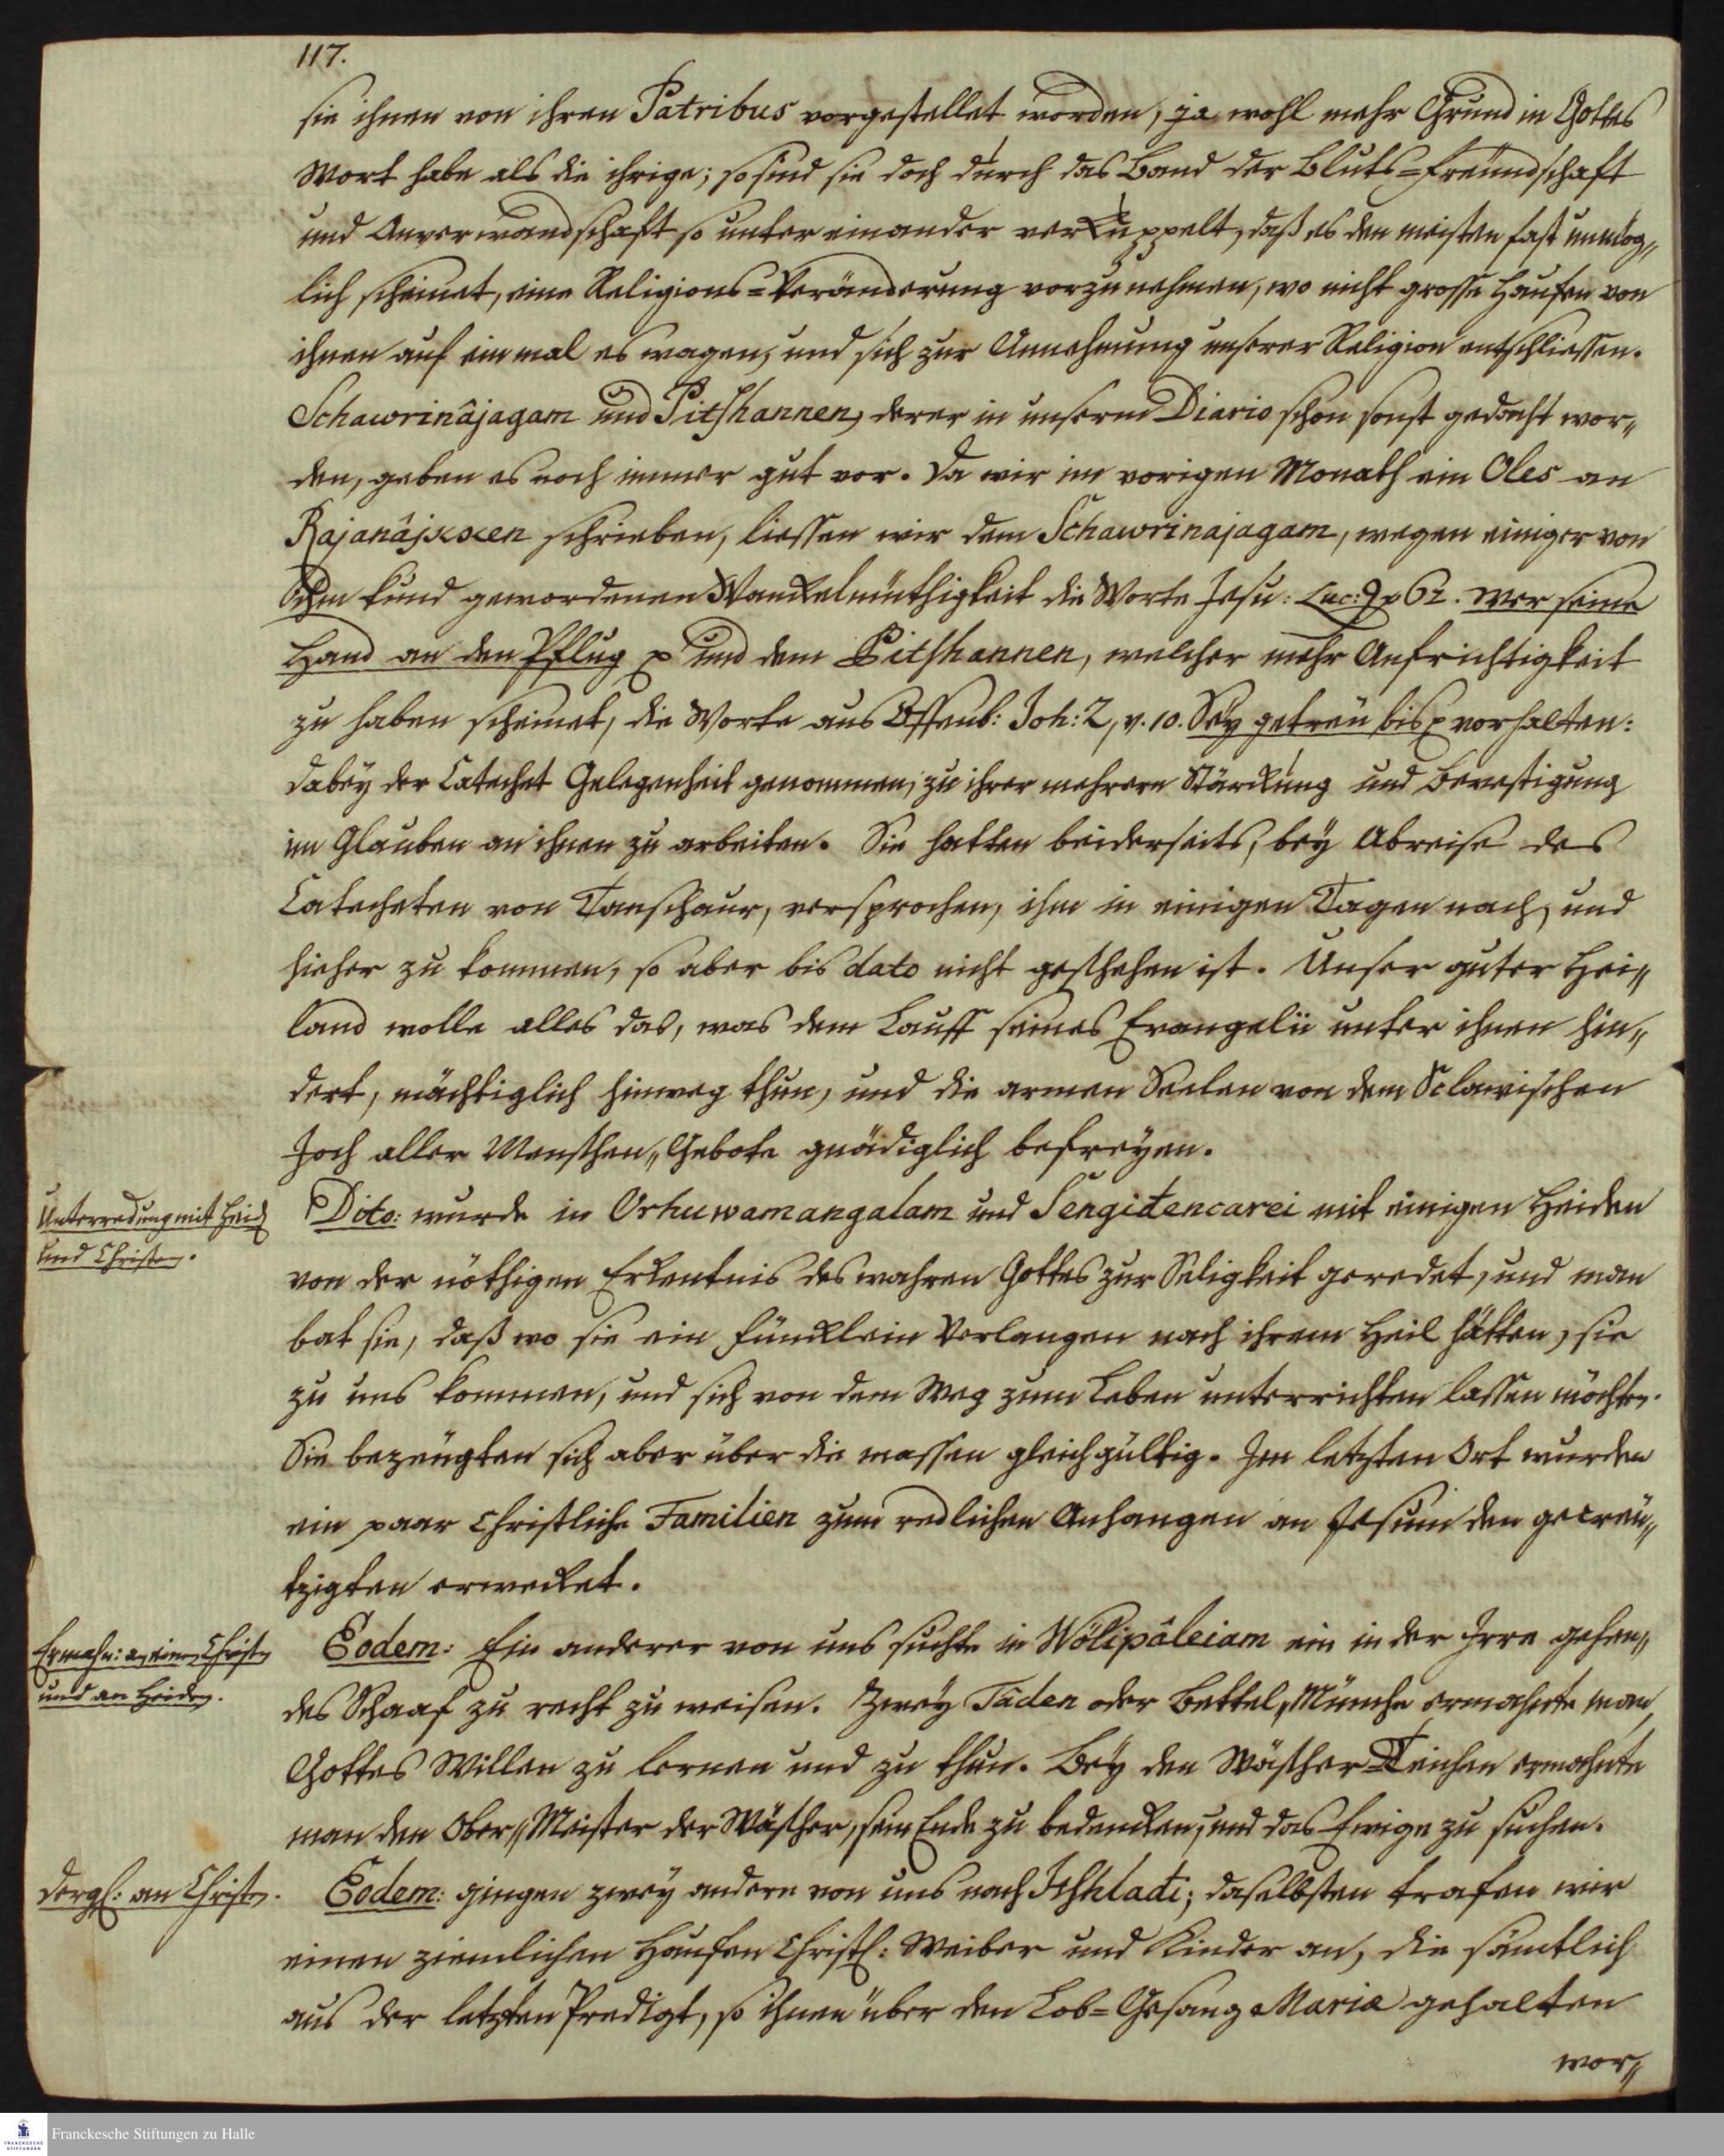 117.
sie ihnen von ihren Patribus vorgestellet worden, ja wohl mehr Grund in Gottes
Wort habe als die ihrige; so sind sie doch durch das Band der Bluts=Freundschaft
und Anverwandschaft so unter einander verkuppelt, daß es den meisten fast unmög„
lich scheinet, eine Religions=Veränderung vorzunehmen, wo nicht grosse Haufen von
ihnen auf ein mal es wagen, und sich zur Annehmung unserer Religion entschliessen.
Schawrinâjagam und Pitshannen, derer in unserm Diario schon sonst gedacht wor„
den, geben es noch immer gut vor. Da wir im vorigen Monath ein Oles an
schrieben, liessen wir dem Schawrinajagam, wegen einiger von
ihm kund gewordenen Wanckelmüthigkeit die Worte Jesu: Luc: 9 v 62. Wer seine
Hand an den Pflug p und dem Pitshannen, welcher mehr Aufrichtigkeit
zu haben scheinet, die Worte aus Offenb: Joh: 2, v. 10. Sey getreu bis p vorhalten:
dabey der Catechet Gelegenheit genommen, zu ihrer mehrern Stärckung und Bevestigung
im Glauben an ihnen zu arbeiten. Sie hatten beiderseits, bey Abreise des
Catecheten von Tanschaur, versprochen, ihm in einigen Tagen nach, und
hieher zu kommen, so aber bis dato nicht geschehen ist. Unser guter Hei„
land wolle alles das, was dem Lauff seines Evangelii unter ihnen hin„
dert, mächtiglich hinweg thun, und die armen Seelen von dem Sclavischen
Joch aller Menschen„Gebote gnädiglich befreyen.
Unterredung mit Heid
und Christen.
Dito: wurde in Orhuwamangalam und Sengidencarei mit einigen Heiden
von der nöthigen Erkentnis des wahren Gottes zur Seligkeit geredet, und man
bat sie, daß wo sie ein Füncklein Verlangen nach ihrem Heil hätten, sie
zu uns kommen, und sich von dem Weg zum Leben unterrichten lassen möchten.
Sie bezeugten sich aber über die massen gleichgültig. Im letzten Ort wurden
ein paar Christliche Familien zum redlichen Anhangen an Jesum den gecreu„
tzigten erwecket.
Ermahn: an einen Christen
und an Heiden.
Eodem: Ein anderer von uns suchte in Wölipâleiam ein in der Irre gehen„
des Schaaf zu recht zu weisen. Zwey Tâden oder Bettel„Münche ermahnte man,
Gottes Willen zu lernen und zu thun. Bey den Wäscher=Teichen ermahnte
man den Ober„Meister der Wäscher, sein Ende zu bedencken, und das Ewige zu suchen.
dergl: an Christen.
Eodem: gingen zwey andere von uns nach Itshladi; daselbsten trafen wir
einen ziemlichen Haufen Christl: Weiber und Kinder an, die sämtlich
aus der letzten Predigt, so ihnen über den Lob=Gesang Mariä gehalten
wor„
FRANCKESCHE STIFTUNGEN
Franckesche Stiftungen zu Halle